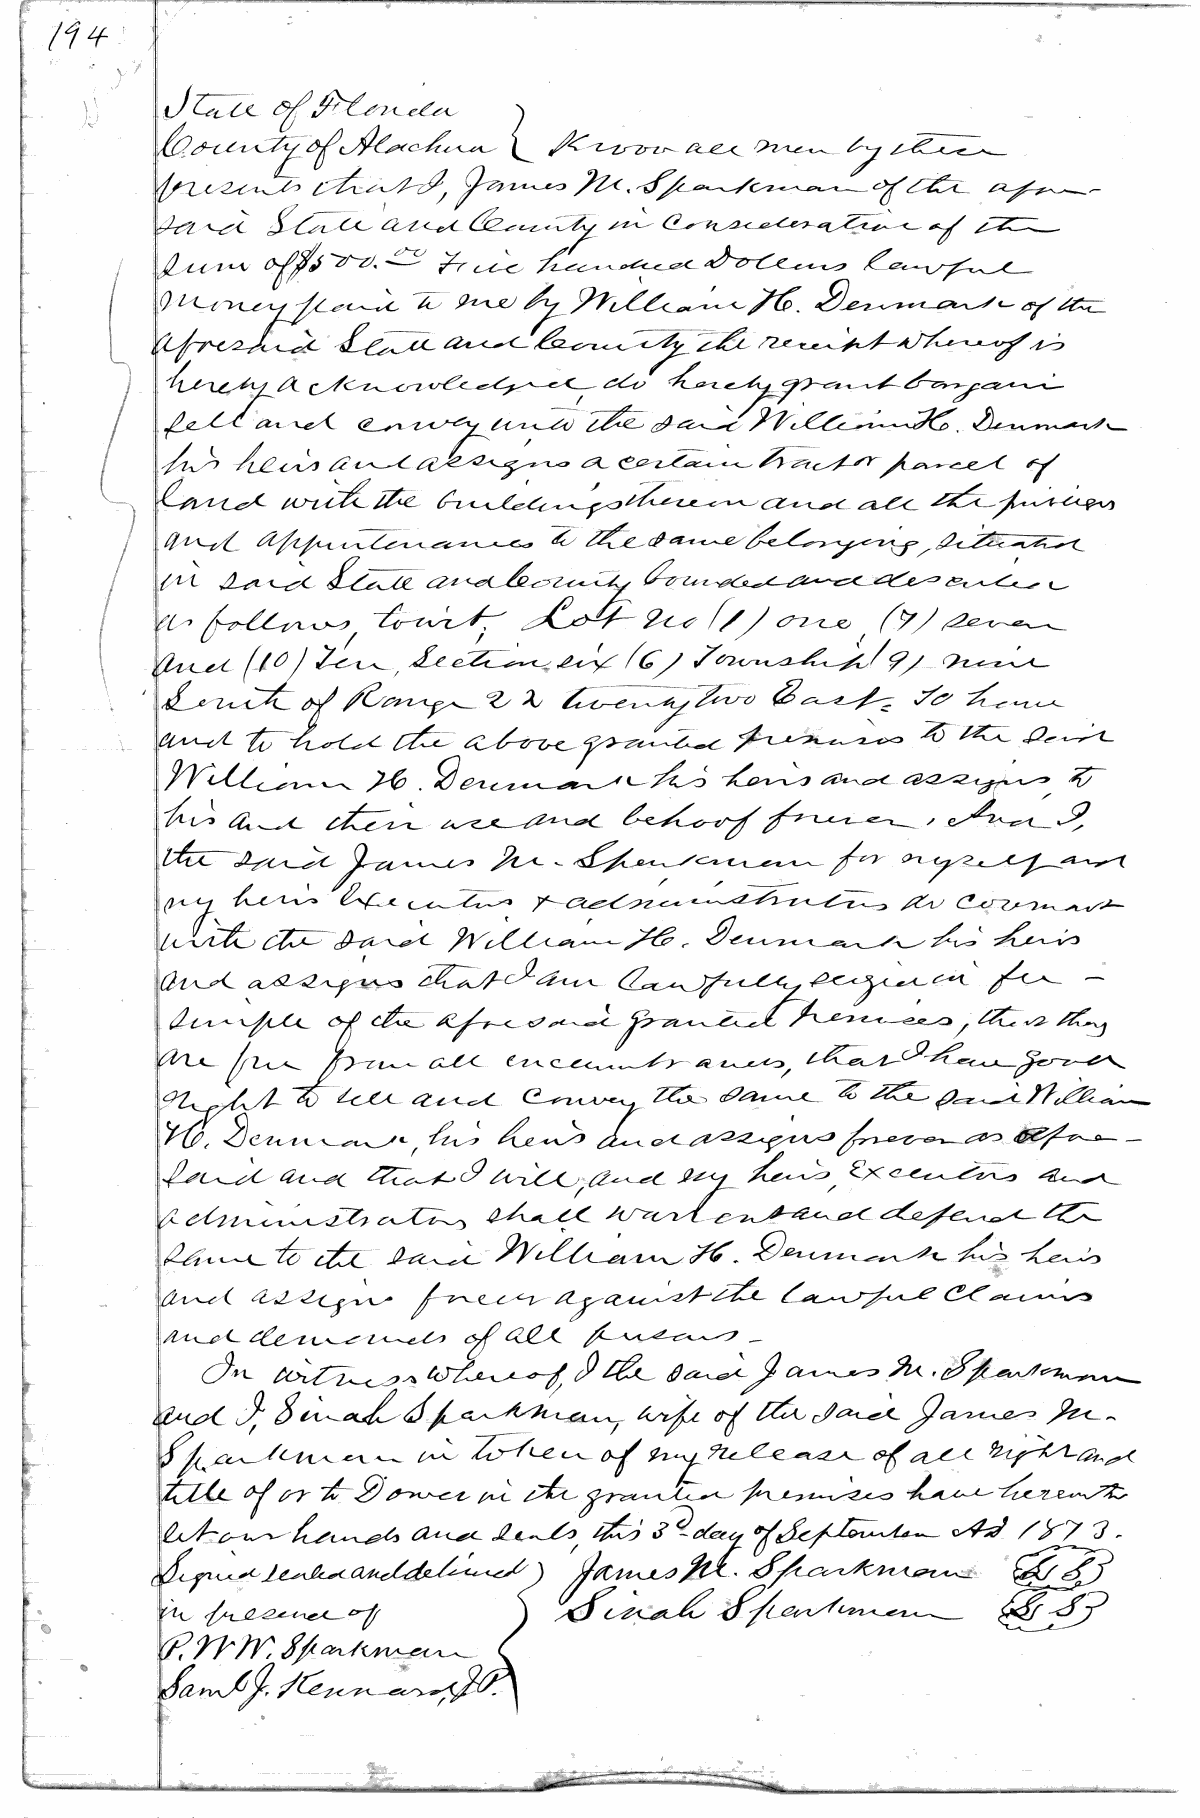 194
State of Florida
County of Alachua } Know all men by these
presents that I, James M. Sparkman of the afore-
said State and County in Consideration of the
Sum of $500.00 Five hundred Dollars lawful
money paid to me by William H. Denmark of the
aforesaid State and County the receipt whereof is
hereby acknowledged, do hereby grant bargain
sell and convey unto the said William H. Denmark
his heirs and assigns a certain tract or parcel of
land with the buildings therein and all the privileges
and appurtenances to the same belonging, situated
in said State and County bounded and described
as follows, towit, Lot No (1) one, (7) seven
and (10) Ten, Section six (6) Township (9) nine
South of Range 22 twenty two East. To have
and to hold the above granted premises to the said
William H. Denmark his heirs and assigns, to
his and their use and behoof forever. And I,
the said James M. Sparkman for myself and
my heirs Executors & administrators do covenant
with the said William H. Denmark his heirs
and assigns that I am lawfully seized in fee -
simple of the aforesaid granted premises, that they
are free from all encumbrances, that I have good
right to sell and convey the same to the said William
H. Denmark, his heirs and assigns forever as afore-
said and that I will, and my heirs, Executors and
administrators shall warrant and defend the
same to the said William H. Denmark his heirs
and assigns forever against the lawful Claims
and demands of all persons -
In witness whereof, I the said James M. Sparkman
and I, Sinah Sparkman, wife of the said James M.
Sparkman in token of my release of all right and
title of or to Dower in the granted premises have hereunto
set our hands and seals, this 3d day of September AD 1873.
Signed sealed and delivered } James M. Sparkman LS
in presence of Sinah Sparkman LS
P. W. W. Sparkman
Saml J. Kennard, J.P.